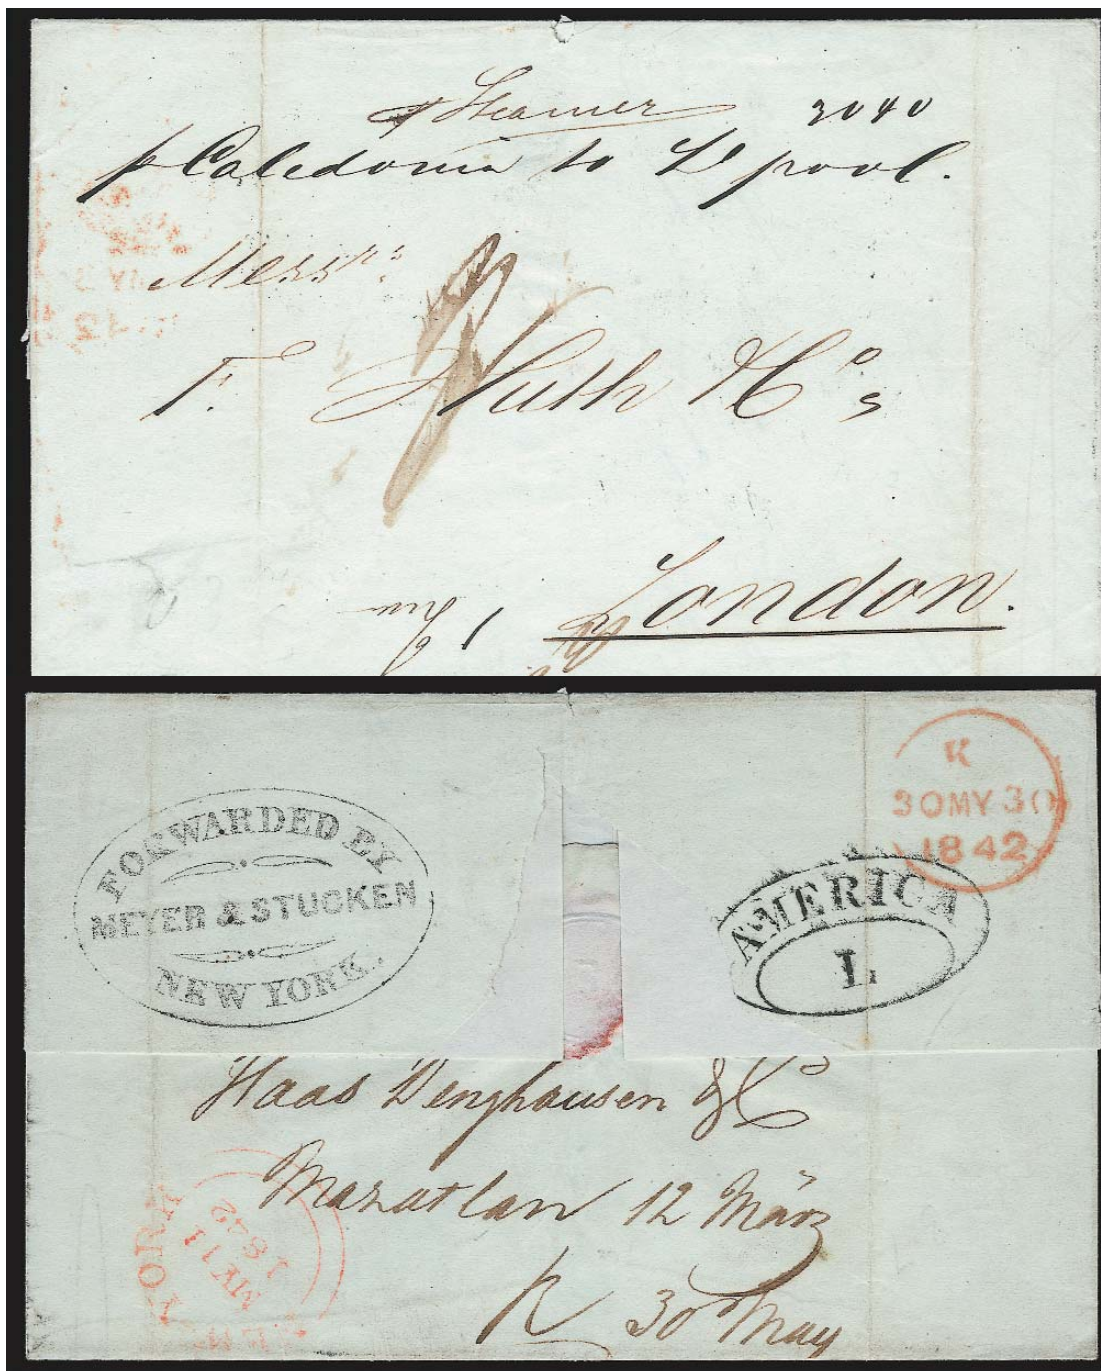 Steamer 3040
p Caledonia to L'pool.
Messrs
F. Huth & Cos
London.
FORWARDED BY
MEYER & STUCKEN
NEW YORK.
K
30MY30
1842
AMERICA
L
Haas Denghausen & Co
Mazatlan 12 März
R 30 May
YORK
MY 11
1842